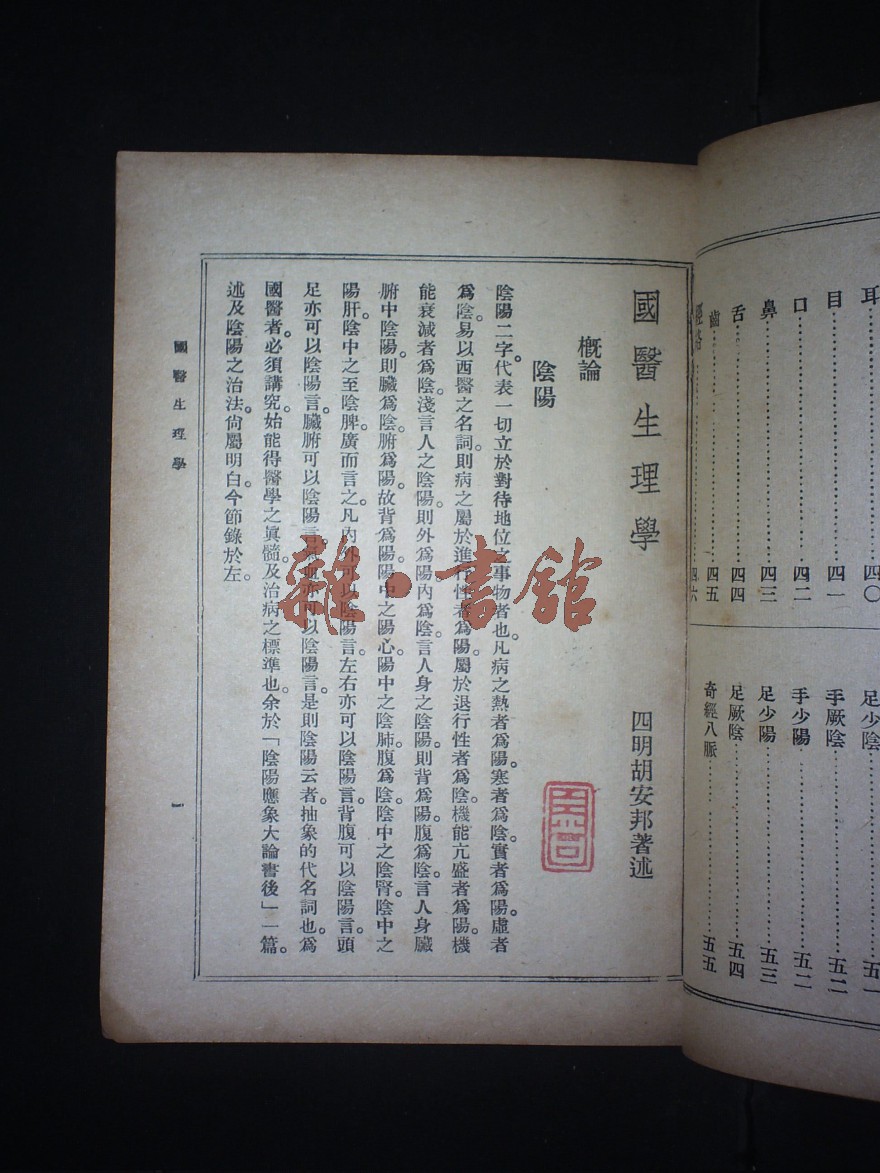 耳 四〇
目 四一
口 四二
鼻 四三
舌 四四
齒 四五
經絡 四六
足少陰 五一
手厥陰 五二
手少陽 五二
足少陽 五三
足厥陰 五四
奇經八脈 五五
國醫生理學
四明胡安邦著述
概論
陰陽
陰陽二字。代表一切立於對待地位之事物者也。凡病之熱者爲陽。寒者爲陰。實者爲陽。虛者
爲陰。易以西醫之名詞。則病之屬於進行性者爲陽。屬於退行性者爲陰。機能亢盛者爲陽。機
能衰減者爲陰。淺言人之陰陽。則外爲陽。內爲陰。言人身之陰陽。則背爲陽。腹爲陰。言人身臟
腑中陰陽。則臟爲陰。腑爲陽。故背爲陽。陽中之陽心。陽中之陰肺。腹爲陰。陰中之陰腎。陰中之
陽肝。陰中之至陰脾。廣而言之。凡內外可以陰陽言。左右亦可以陰陽言。背腹可以陰陽言。頭
足亦可以陰陽言。臟腑可以陰陽言。氣血亦可以陰陽言。是則陰陽云者。抽象的代名詞也。爲
國醫者。必須講究。始能得醫學之眞髓。及治病之標準也。余於「陰陽應象大論書後」一篇。
述及陰陽之治法。尙屬明白。今節錄於左。
國醫生理學
一
雜·書館